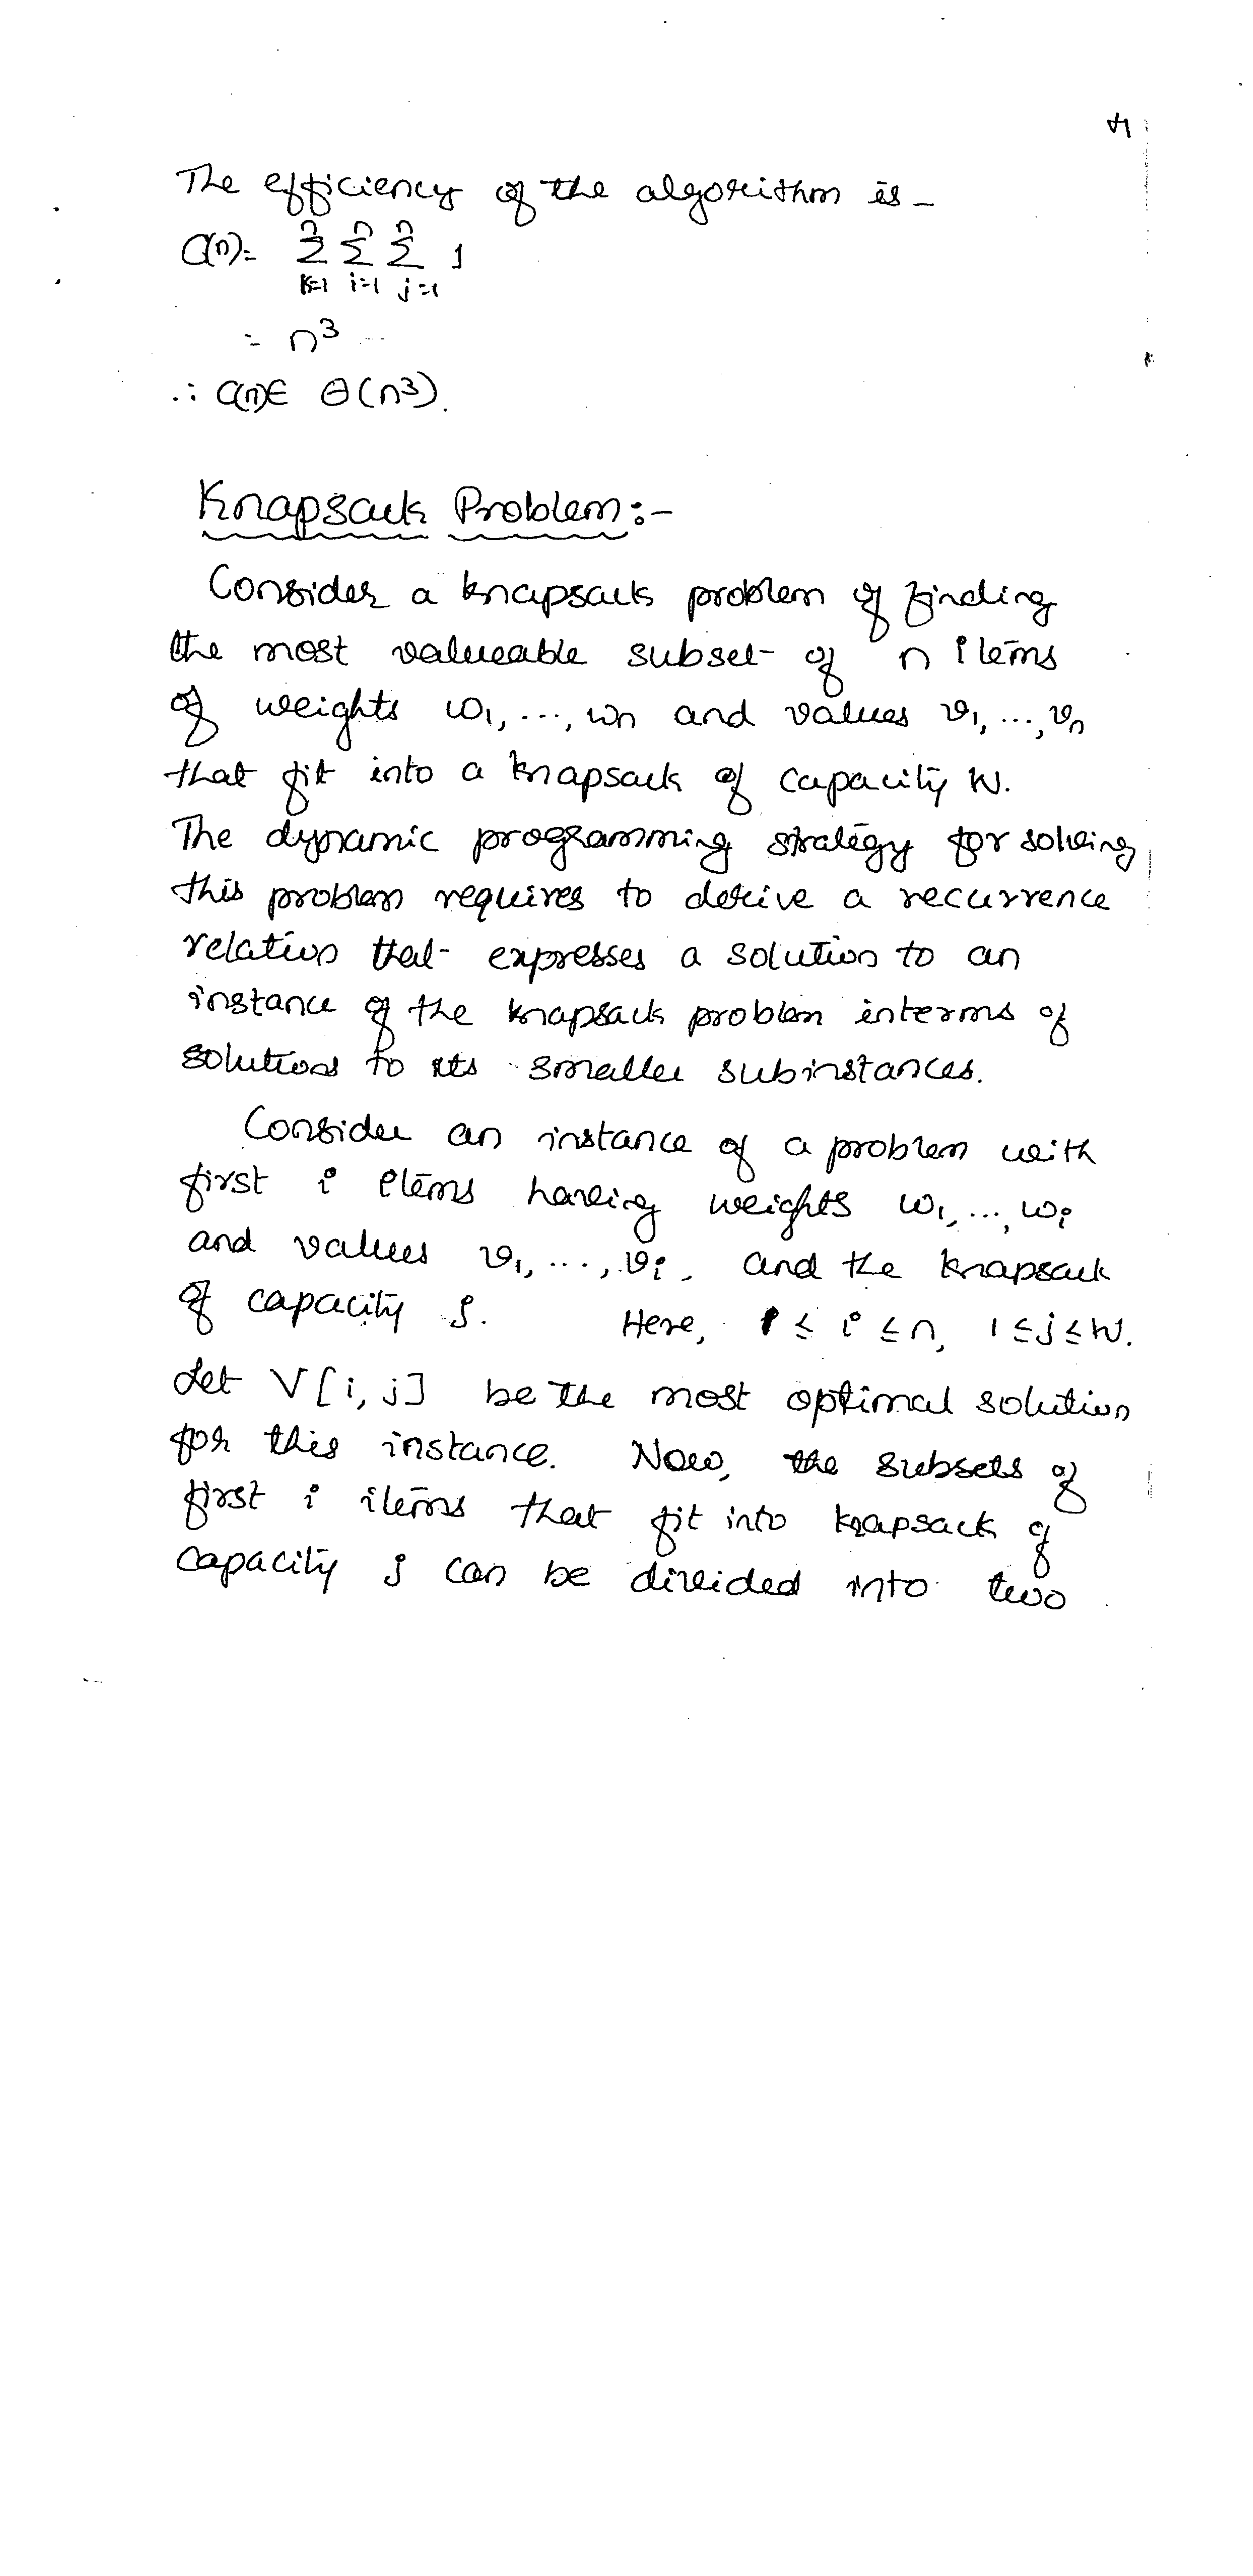 The efficiency of the algorithm is –
C(n) = n∑k=1 n∑i=1 n∑j=1 1
= n³
∴ C(n) ∈ Θ(n³).
Knapsack Problem:-
Consider a knapsack problem of finding
the most valueable subset of n items
of weights w₁, ..., wn and values v₁, ..., vn
that fit into a knapsack of capacity W.
The dynamic programming strategy for solving
this problem requires to derive a recurrence
relation that expresses a solution to an
instance of the knapsack problem interms of
solutions to its smaller subinstances.
Consider an instance of a problem with
first i items having weights w₁, ..., wi
and values v₁, ..., vi, and the knapsack
of capacity j. Here, 1 ≤ i ≤ n, 1 ≤ j ≤ W.
Let V[i, j] be the most optimal solution
for this instance. Now, the subsets of
first i items that fit into knapsack of
capacity j can be divided into two